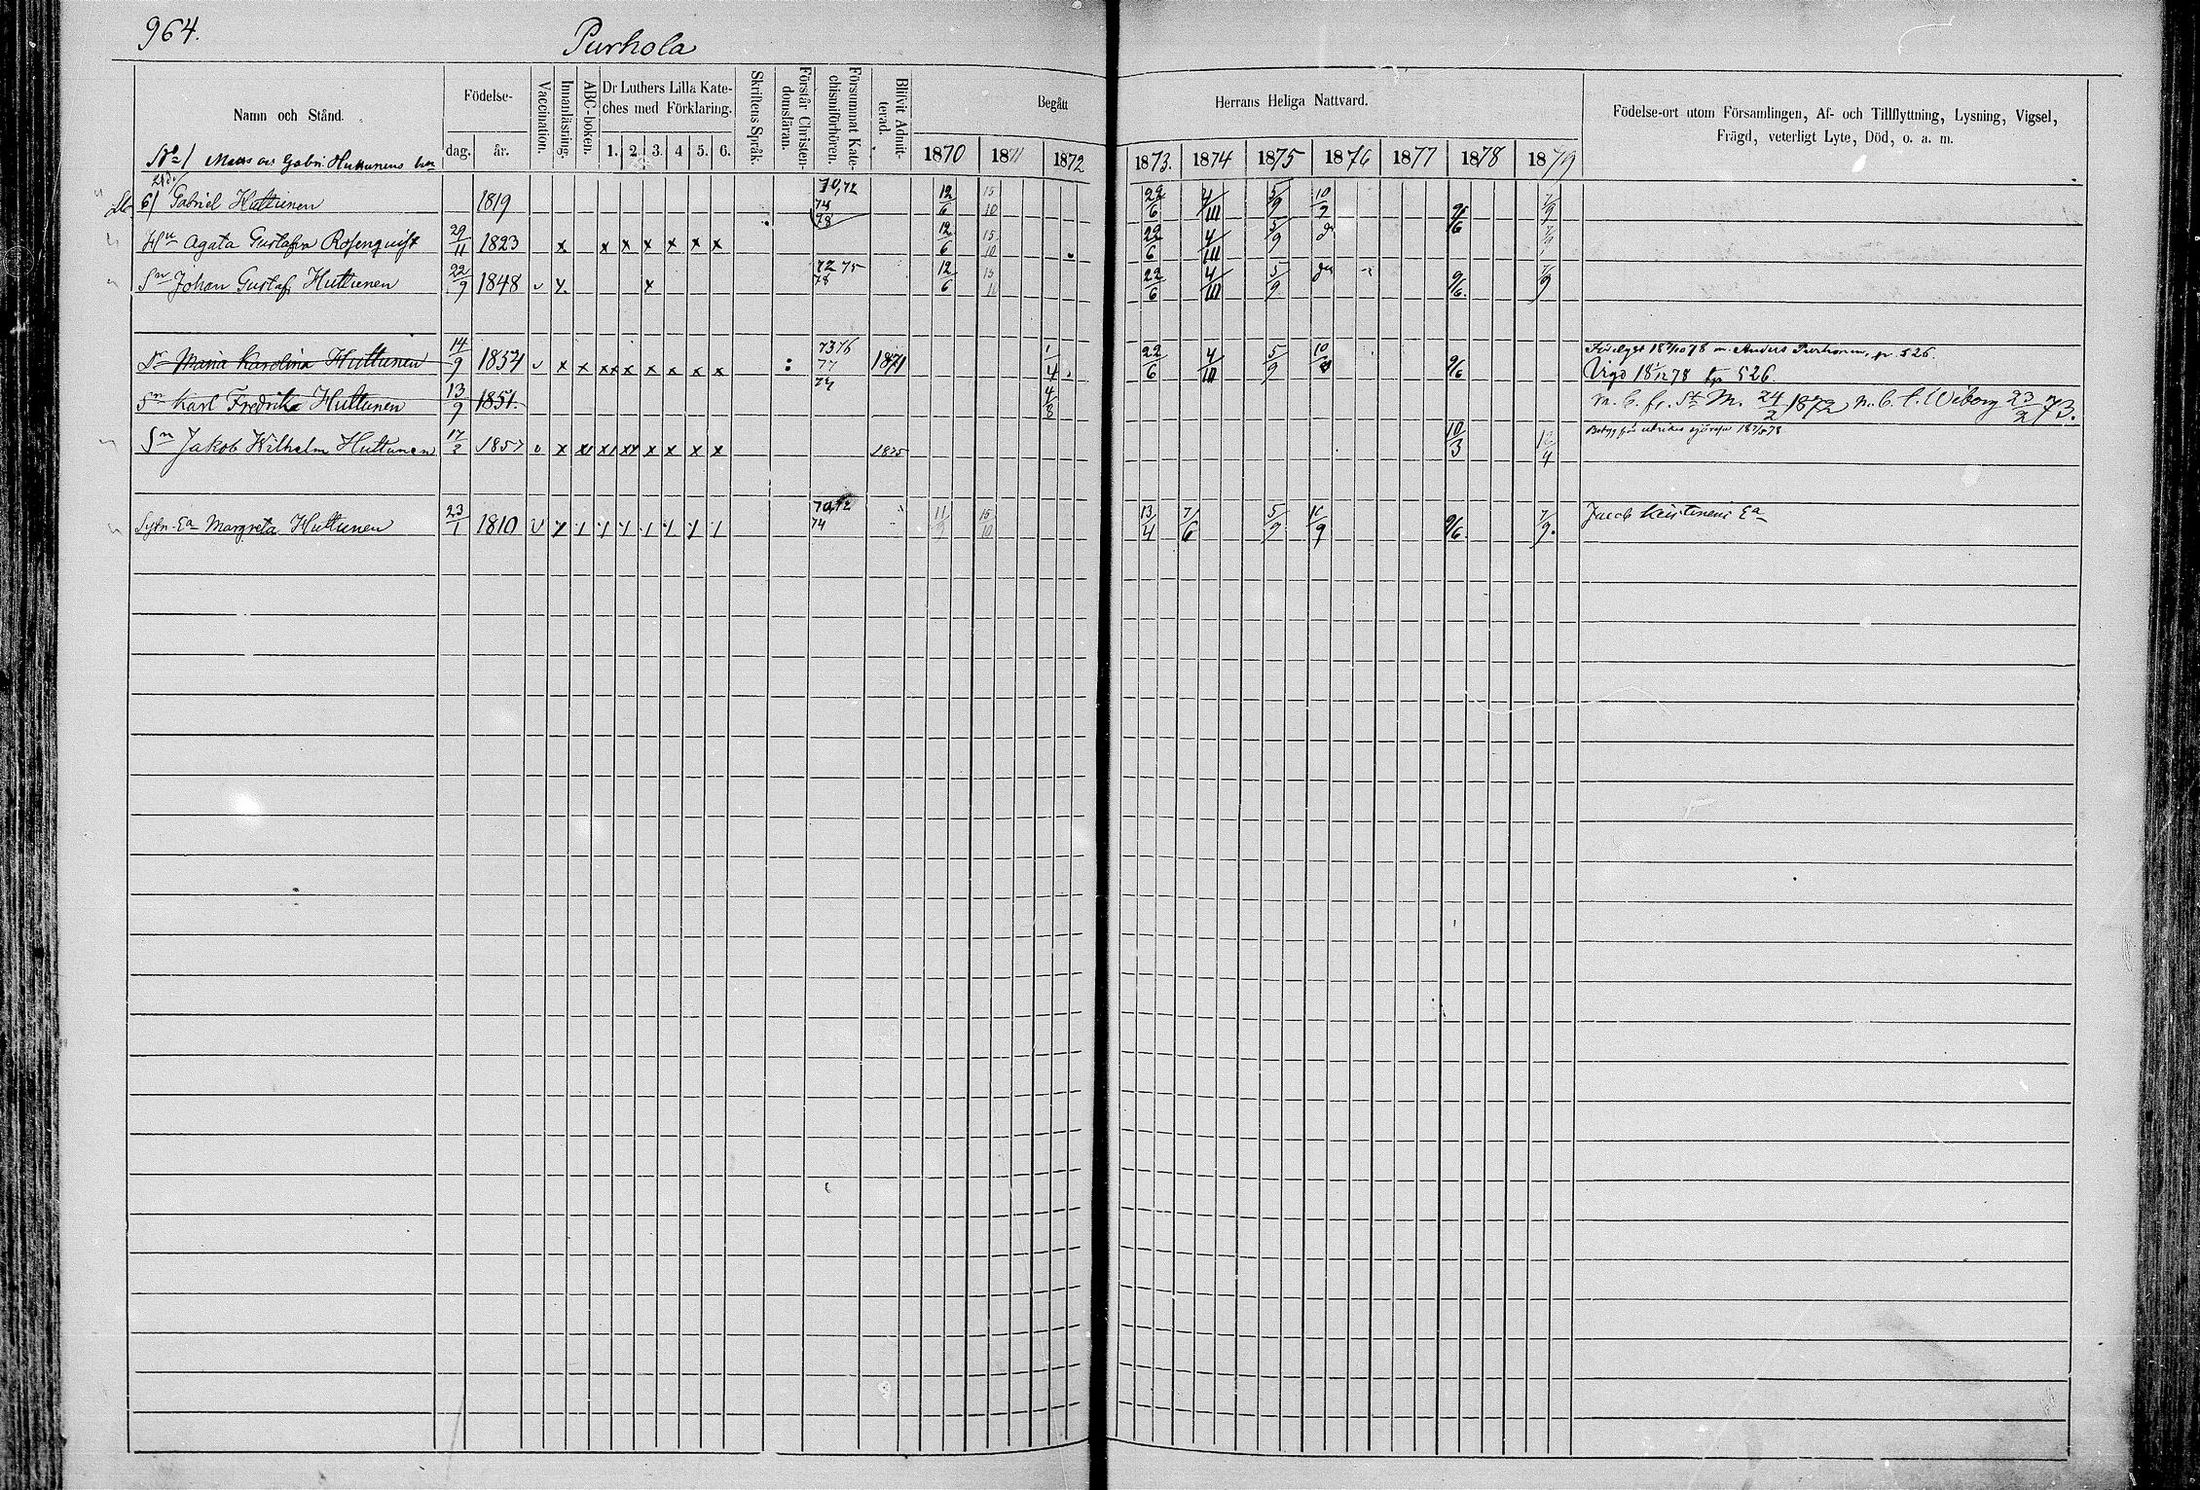 964.
Purhola
Namn och Stånd.
Födelse-
dag.
år.
Vaccination.
Innanläsning.
ABC-boken.
Dr Luthers Lilla Kate-
ches med Förklaring.
1. 2. 3. 4 5. 6.
Skriftens Språk.
Förstår Christen-
domsläran.
Försummat Kate-
chismiförhören.
Blifvit Admit-
terad.
Begått
Herrans Heliga Nattvard.
1870 1871 1872 1873. 1874 1875 1876 1877 1878 1879
Födelse-ort utom Församlingen, Af- och Tillflyttning, Lysning, Vigsel,
Frägd, veterligt Lyte, Död, o. a. m.
No 1 Matts o Gabr. Huttunens
61 Gabriel Huttunen 1819 70,72 74 78 12/6 15/10 22/6 4/10 5/9 10/9 9/6 7/9
Hu Agata Gustafsn Rosenquist 29/11 1823 x x x x x x x 12/6 15/10 22/6 4/10 5/9 7/9
Sn Johan Gustaf Huttunen 22/9 1848 v x x 72 75 78 12/6 15/10 22/6 4/10 5/9 9/6. 7/9
Dr Maria Karolina Huttunen 14/9 1854 v x x xx x x x x x 73 76 77 1871 1/4 22/6 4/10 5/9 10/9 9/6 18 78 m. Anders Purhonen, p. 526.
Vigd 18 1/12 78 526
Sn Karl Fredrik Huttunen 13/9 1851. 74 4/8 m. b. fr. St M. 24/2 1872 m. b. t. Wiborg 23/2 73.
Sn Jakob Wilhelm Huttunen 17/2 1857 v x x x x x x x x 1875 10/3 12/4 Betyg för utrikes sjöresa 78
Sytn. Ea Margreta Huttunen 23/1 1810 v 70,72 74 11/9 15/10 13/4 7/6 5/9 10/9 9/6. 7/9. Jacob Ea